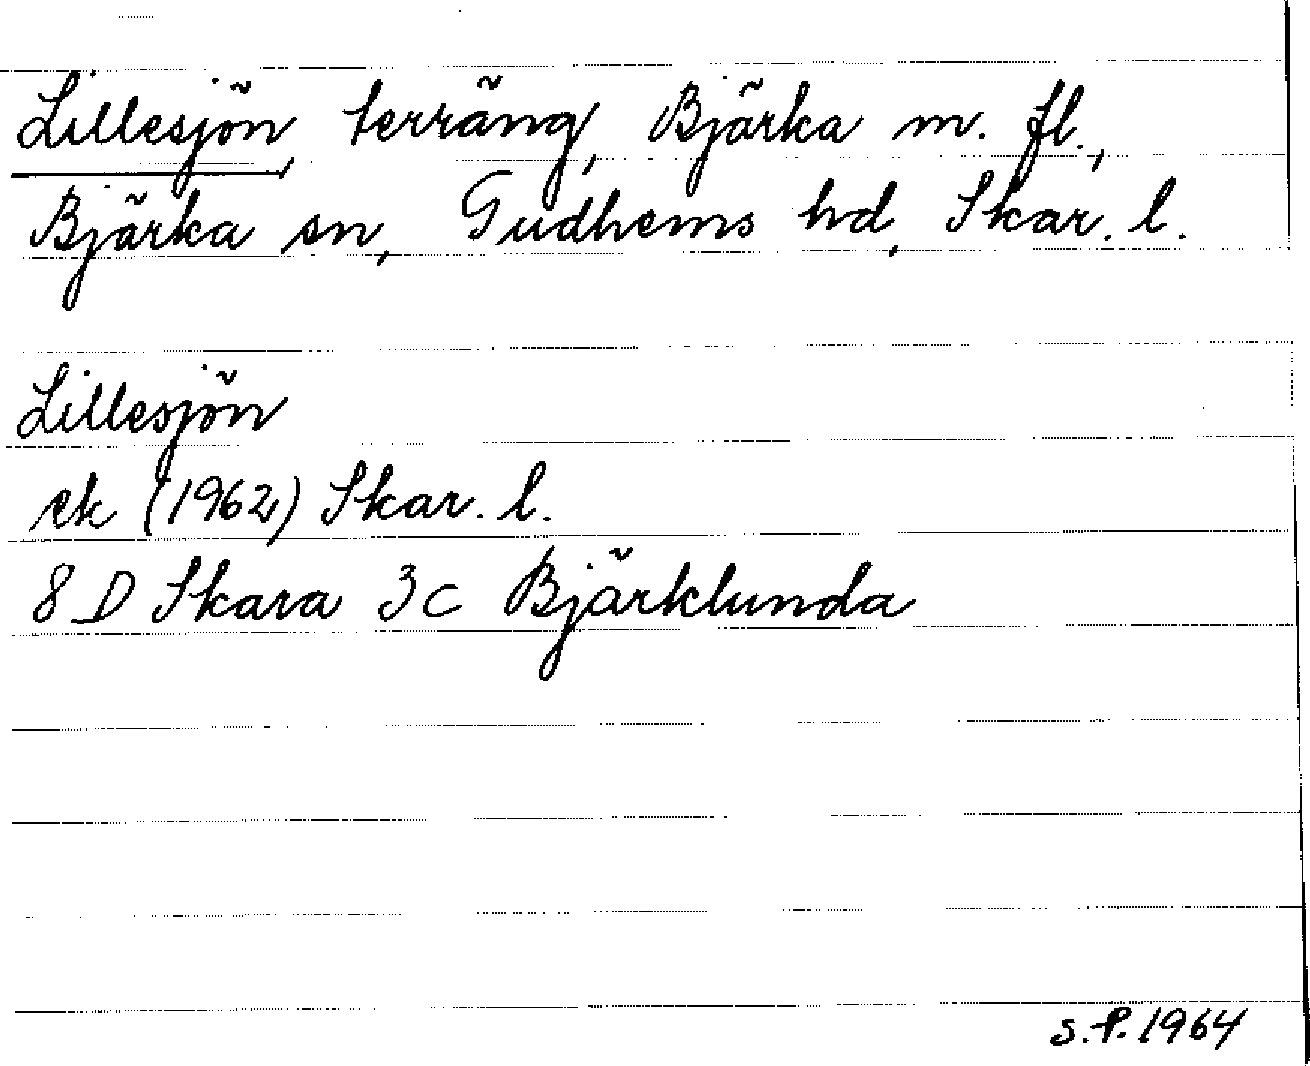 Lillesjön, terräng, Bjärka m. fl.,
Bjärka sn, Gudhems hd, Skar. l.
Lillesjön
ek (1962) Skar. l.
8 D Skara 3c Bjärklunda
S.P. 1964